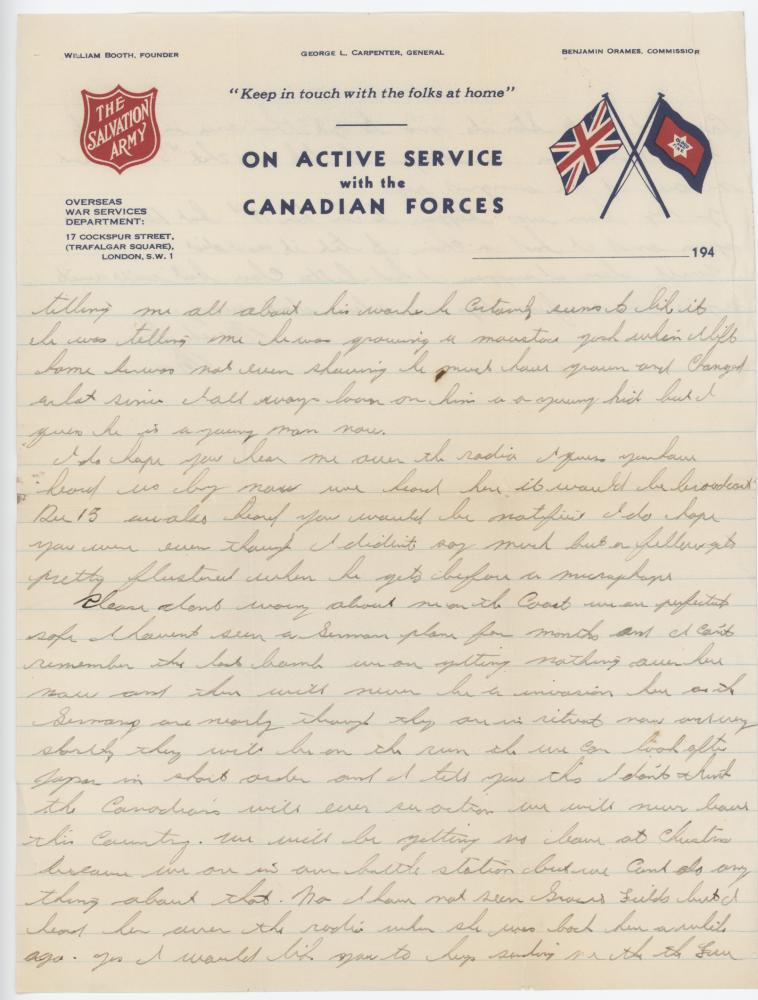 WILLIAM BOOTH, FOUNDER
GEORGE L. CARPENTER, GENERAL
BENJAMIN ORAMES, COMMISSIOR
THE
SALVATION
ARMY
"Keep in touch with the folks at home"
ON ACTIVE SERVICE
with the
CANADIAN FORCES
OVERSEAS
WAR SERVICES
DEPARTMENT:
17 COCKSPUR STREET,
(TRAFALGAR SQUARE),
LONDON, S.W. 1
194
telling me all about his work he certainly seems to like it
he was telling me he was growing a moustac gosh when I left
home he was not even shaving he must have grown and changed
a lot since I all ways look on him as a young kid but I
guess he is a young man now.
I do hope you hear me over the radio I guess you have
heard us by now we heard here it would be broadcast
Dec 15 we also heard you would be notified I do hope
you were even though I didn't say much but a fellow gets
pretty flustered when he gets before a
Please dont worry about me on the Coast we are perfectly
safe I havent seen a German plane for months and I can't
remember the last bomb we are getting nothing over here
now and there will never be a invasion here as the
Germans are nearly through they are in retreat now and very
shortly they will be on the run the we can look after
Japan in short order and I tell you this I don't think
the Canadians will ever see action we will never leave
this Country. We will be getting no leave at
because we are in our battle station but we cant do any
thing about that. No I have not seen Gracie Fields but I
heard her over the radio when she was back here awhile
ago. Yes I would like you to keep sending me the the